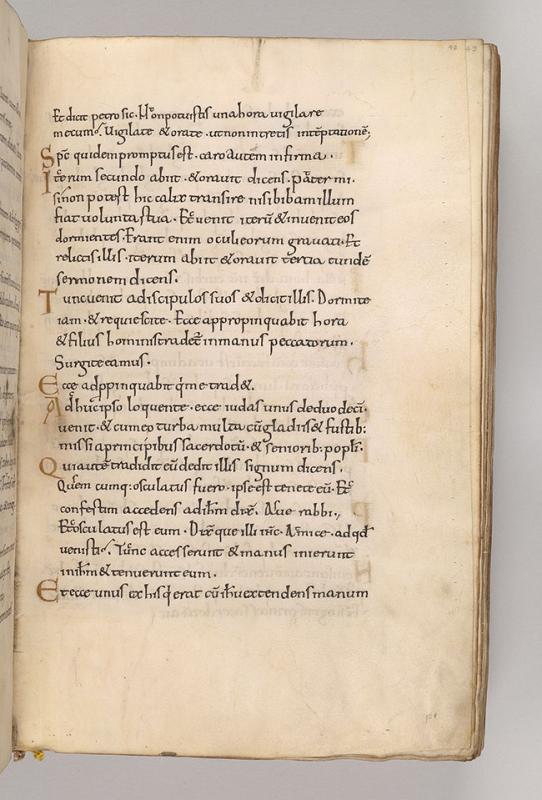 Et dicit petro sic. Non potuistis una hora vigilare
mecum. Vigilate & orate. ut non intretis in teptatione;
Sps quidem promptus est. caro autem infirma.
Iterum secundo abiit. & oravit dicens. pater mi.
si non potest hic calix transire nisi bibam illum
fiat voluntas tua. Et venit iteru & invenit eos
dormientes. Erant enim oculi eorum gravati. Et
relictis illis. iterum abiit & oravit tertia eunde
sermonem dicens.
Tunc venit ad discipulos suos & dicit illis. Dormite
iam. & requiescite. Ecce appropinquabit hora
& filius hominis tradet in manus peccatorum.
Surgite eamus.
Ecce adppinquabit qi me trad&.
Adhuc ipso loquente. ecce iudas unus de duodeci.
venit. & cum eo turba multa cu gladiis & fustib:
missi a principibus sacerdotu. & seniorib: popli.
Qui aute tradidit eu dedit illis signum dicens.
Quem cumq: osculatus fuero. ipse est tenete eu. Et
confestim accedens ad ihm dix. Ave rabbi.,
Et osculatus est eum. Dixque illi ihc. Amice. ad qd
venisti. Tunc accesserunt & manus inierunt
in ihm & tenuerunt eum.
Et ecce unus ex his q erat cu ihu extendens manum